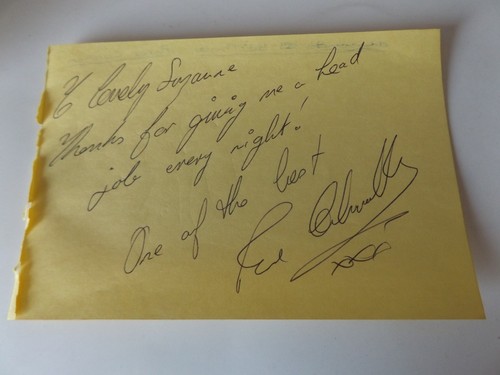 To lovely Suzanne
Thanks for giving me a head
job every night!
One of the best
xxx